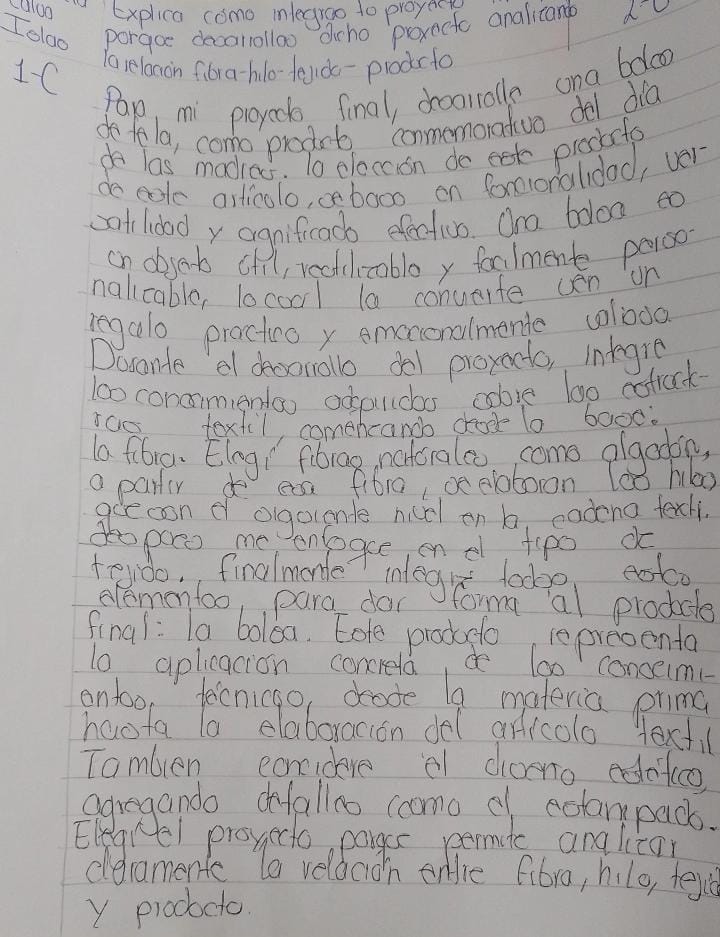 Explica cómo integras to proyecto analizando 2-0
Islas porque desarrollas dicho proyecto
la relación fibra-hilo-tejido-producto
1-C Para mi proyecto final, desarrolle una bolsa
de tela, como producto conmemorativo del día
de las madres. la elección de este producto
de este artículo, se baso en funcionalidad, ver-
satilidad y significado efectivo. Una bolsa es
un objeto útil, reutilizable y facilmente perso-
nalizable, lo cual la convierte en un
regalo practico y emocionalmente valioso.
Durante el desarrollo del proyecto, integre
los conocimientos adquiridos sobre las estruct-
ras textil, comenzando desde la base:
la fibra. Elegí fibras naturales como algodón,
a partir de esa fibra, se elaboran los hilos
que son el siguiente nivel en la cadena texti.
despues me enfoque en el tipo de
tejido, finalmente integre todos estos
elementos para dar forma al producto
final: la bolsa. Este producto representa
la aplicación concreta de los conocimi-
entos, técnicos, desde la materia prima
hasta la elaboración del artículo textil
Tambien considere el diseño estético,
agregando detalles como el estampado.
Elegí el proyecto porque permite analizar
claramente la relación entre fibra, hilo, tejido
y producto.